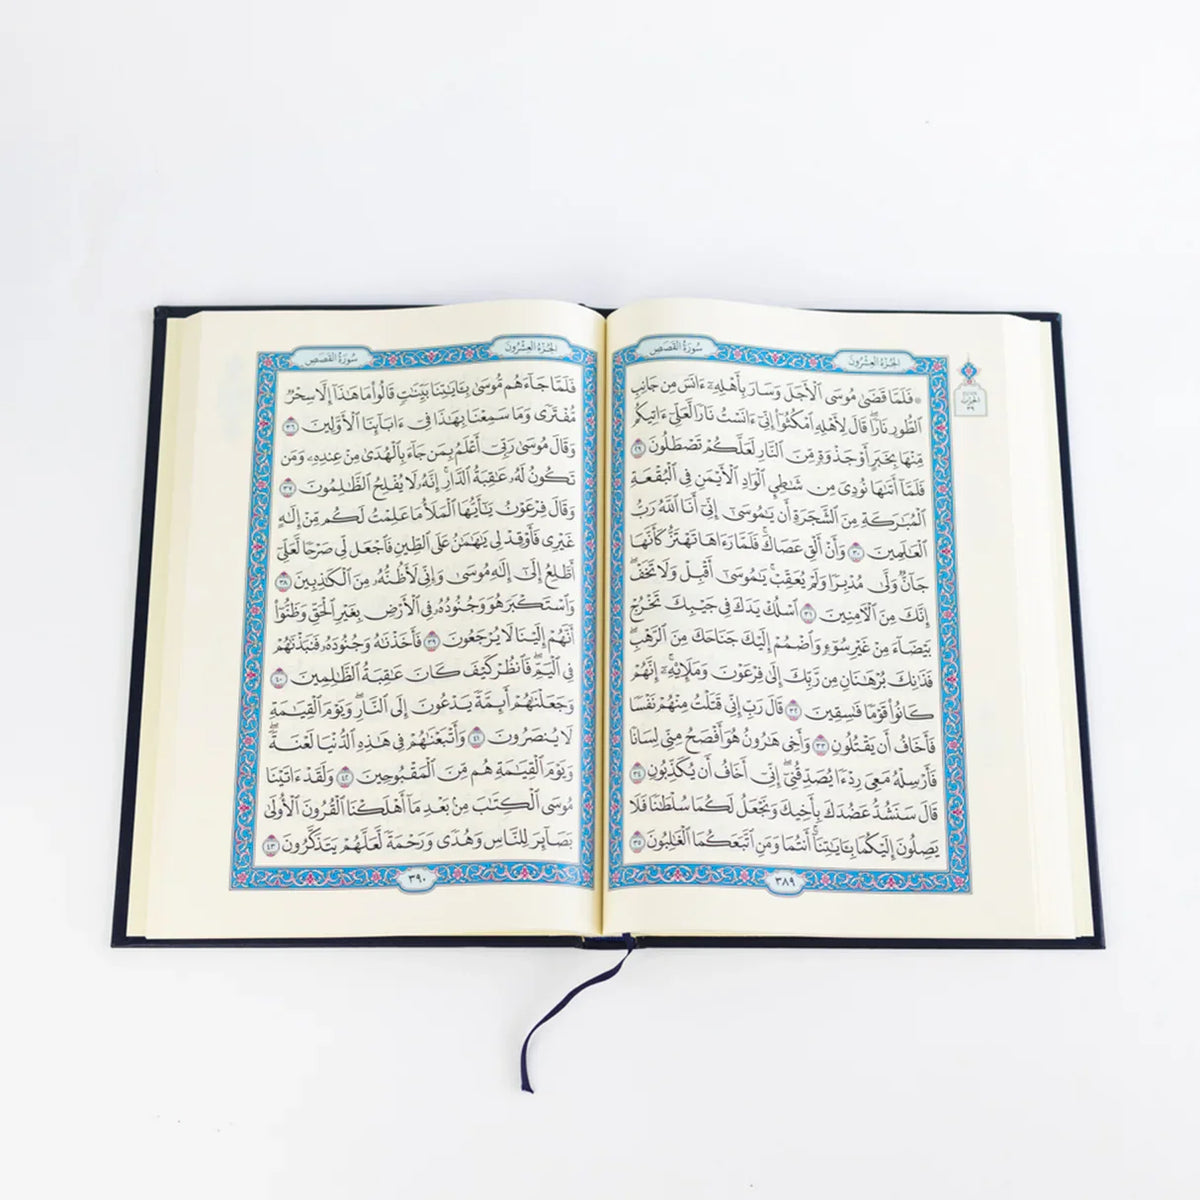 الجُزْءُ العِشْرُونَ
سُورَةُ القَصَصِ
الحزب
٣٩
۞ فَلَمَّا قَضَىٰ مُوسَى ٱلْأَجَلَ وَسَارَ بِأَهْلِهِۦٓ ءَانَسَ مِن جَانِبِ
ٱلطُّورِ نَارًاۖ قَالَ لِأَهْلِهِ ٱمْكُثُوٓا۟ إِنِّىٓ ءَانَسْتُ نَارًا لَّعَلِّىٓ ءَاتِيكُم
مِّنْهَا بِخَبَرٍ أَوْ جَذْوَةٍ مِّنَ ٱلنَّارِ لَعَلَّكُمْ تَصْطَلُونَ ٢٩
فَلَمَّآ أَتَىٰهَا نُودِىَ مِن شَٰطِئِ ٱلْوَادِ ٱلْأَيْمَنِ فِى ٱلْبُقْعَةِ
ٱلْمُبَٰرَكَةِ مِنَ ٱلشَّجَرَةِ أَن يَٰمُوسَىٰٓ إِنِّىٓ أَنَا ٱللَّهُ رَبُّ
ٱلْعَٰلَمِينَ ٣٠ وَأَنْ أَلْقِ عَصَاكَۚ فَلَمَّا رَءَاهَا تَهْتَزُّ كَأَنَّهَا
جَآنٌّ وَلَّىٰ مُدْبِرًا وَلَمْ يُعَقِّبْۚ يَٰمُوسَىٰٓ أَقْبِلْ وَلَا تَخَفْۖ
إِنَّكَ مِنَ ٱلْءَامِنِينَ ٣١ ٱسْلُكْ يَدَكَ فِى جَيْبِكَ تَخْرُجْ
بَيْضَآءَ مِنْ غَيْرِ سُوٓءٍ وَٱضْمُمْ إِلَيْكَ جَنَاحَكَ مِنَ ٱلرَّهْبِۖ
فَذَٰنِكَ بُرْهَٰنَانِ مِن رَّبِّكَ إِلَىٰ فِرْعَوْنَ وَمَلَإِي۟هِۦٓۚ إِنَّهُمْ
كَانُوا۟ قَوْمًا فَٰسِقِينَ ٣٢ قَالَ رَبِّ إِنِّى قَتَلْتُ مِنْهُمْ نَفْسًا
فَأَخَافُ أَن يَقْتُلُونِ ٣٣ وَأَخِى هَٰرُونُ هُوَ أَفْصَحُ مِنِّى لِسَانًا
فَأَرْسِلْهُ مَعِىَ رِدْءًا يُصَدِّقُنِىٓۖ إِنِّىٓ أَخَافُ أَن يُكَذِّبُونِ ٣٤
قَالَ سَنَشُدُّ عَضُدَكَ بِأَخِيكَ وَنَجْعَلُ لَكُمَا سُلْطَٰنًا فَلَا
يَصِلُونَ إِلَيْكُمَا بِـَٔايَٰتِنَآۚ أَنتُمَا وَمَنِ ٱتَّبَعَكُمَا ٱلْغَٰلِبُونَ ٣٥
٣٨٩
الجُزْءُ العِشْرُونَ
سُورَةُ القَصَصِ
فَلَمَّا جَآءَهُم مُّوسَىٰ بِـَٔايَٰتِنَا بَيِّنَٰتٍ قَالُوا۟ مَا هَٰذَآ إِلَّا سِحْرٌ
مُّفْتَرًى وَمَا سَمِعْنَا بِهَٰذَا فِىٓ ءَابَآئِنَا ٱلْأَوَّلِينَ ٣٦
وَقَالَ مُوسَىٰ رَبِّىٓ أَعْلَمُ بِمَن جَآءَ بِٱلْهُدَىٰ مِنْ عِندِهِۦ وَمَن
تَكُونُ لَهُۥ عَٰقِبَةُ ٱلدَّارِۚ إِنَّهُۥ لَا يُفْلِحُ ٱلظَّٰلِمُونَ ٣٧
وَقَالَ فِرْعَوْنُ يَٰٓأَيُّهَا ٱلْمَلَأُ مَا عَلِمْتُ لَكُم مِّنْ إِلَٰهٍ
غَيْرِى فَأَوْقِدْ لِى يَٰهَٰمَٰنُ عَلَى ٱلطِّينِ فَٱجْعَل لِّى صَرْحًا لَّعَلِّىٓ
أَطَّلِعُ إِلَىٰٓ إِلَٰهِ مُوسَىٰ وَإِنِّى لَأَظُنُّهُۥ مِنَ ٱلْكَٰذِبِينَ ٣٨
وَٱسْتَكْبَرَ هُوَ وَجُنُودُهُۥ فِى ٱلْأَرْضِ بِغَيْرِ ٱلْحَقِّ وَظَنُّوٓا۟
أَنَّهُمْ إِلَيْنَا لَا يُرْجَعُونَ ٣٩ فَأَخَذْنَٰهُ وَجُنُودَهُۥ فَنَبَذْنَٰهُمْ
فِى ٱلْيَمِّۖ فَٱنظُرْ كَيْفَ كَانَ عَٰقِبَةُ ٱلظَّٰلِمِينَ ٤٠
وَجَعَلْنَٰهُمْ أَئِمَّةً يَدْعُونَ إِلَى ٱلنَّارِۖ وَيَوْمَ ٱلْقِيَٰمَةِ
لَا يُنصَرُونَ ٤١ وَأَتْبَعْنَٰهُمْ فِى هَٰذِهِ ٱلدُّنْيَا لَعْنَةًۖ
وَيَوْمَ ٱلْقِيَٰمَةِ هُم مِّنَ ٱلْمَقْبُوحِينَ ٤٢ وَلَقَدْ ءَاتَيْنَا
مُوسَى ٱلْكِتَٰبَ مِنۢ بَعْدِ مَآ أَهْلَكْنَا ٱلْقُرُونَ ٱلْأُولَىٰ
بَصَآئِرَ لِلنَّاسِ وَهُدًى وَرَحْمَةً لَّعَلَّهُمْ يَتَذَكَّرُونَ ٤٣
٣٩٠